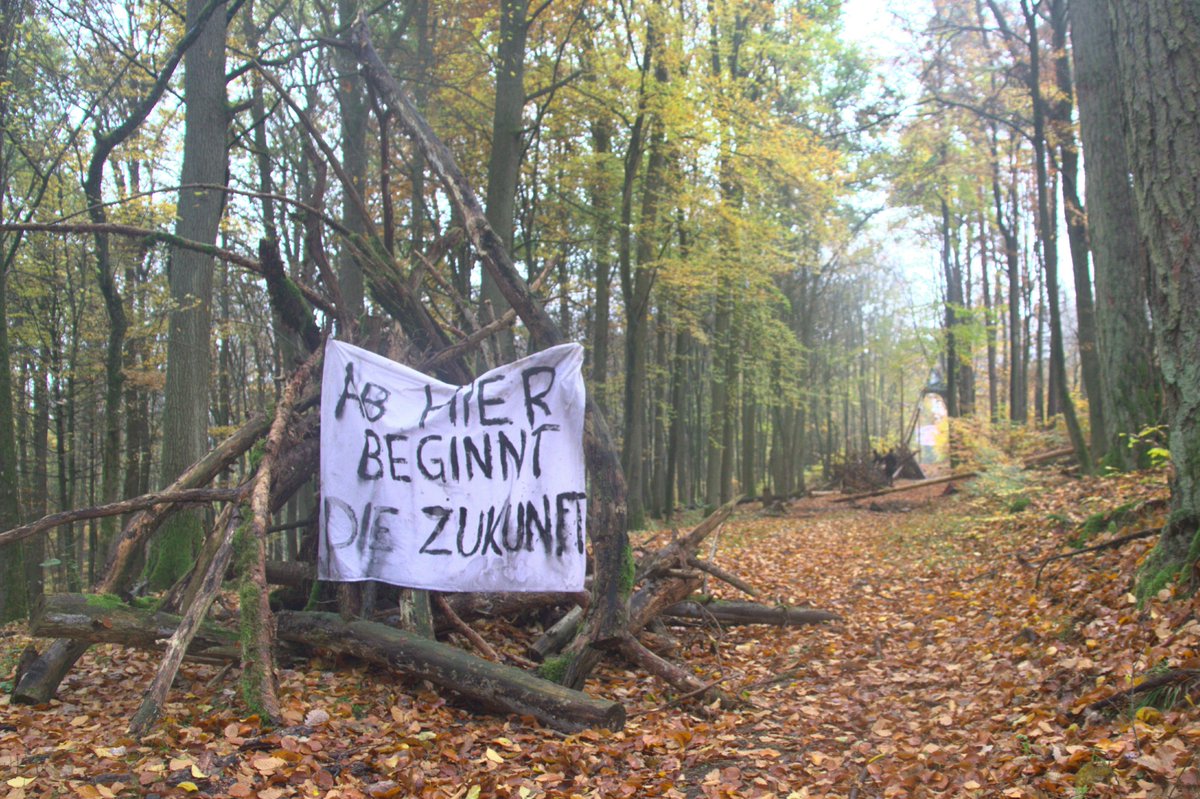 AB HIER
BEGINNT
DIE ZUKUNFT